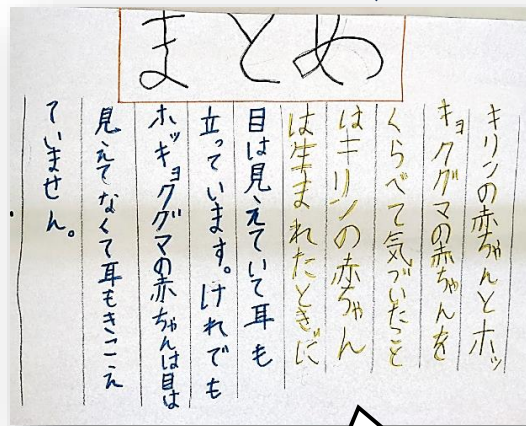 まとめ
キリンの赤ちゃんとホッ
キョクグマの赤ちゃんを
くらべて気づいたこと
はキリンの赤ちゃん
は生まれたときに
目は見えていて耳も
立っています。けれども
ホッキョクグマの赤ちゃんは目は
見えてなくて耳もきこえ
ていません。